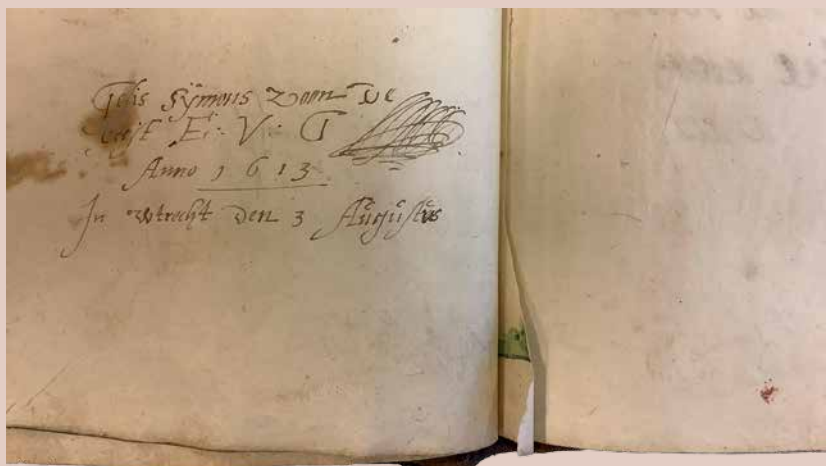 Gelis Sÿmons zoon De
E: V: G
Anno 1613
In wtrecht den 3 Augustus